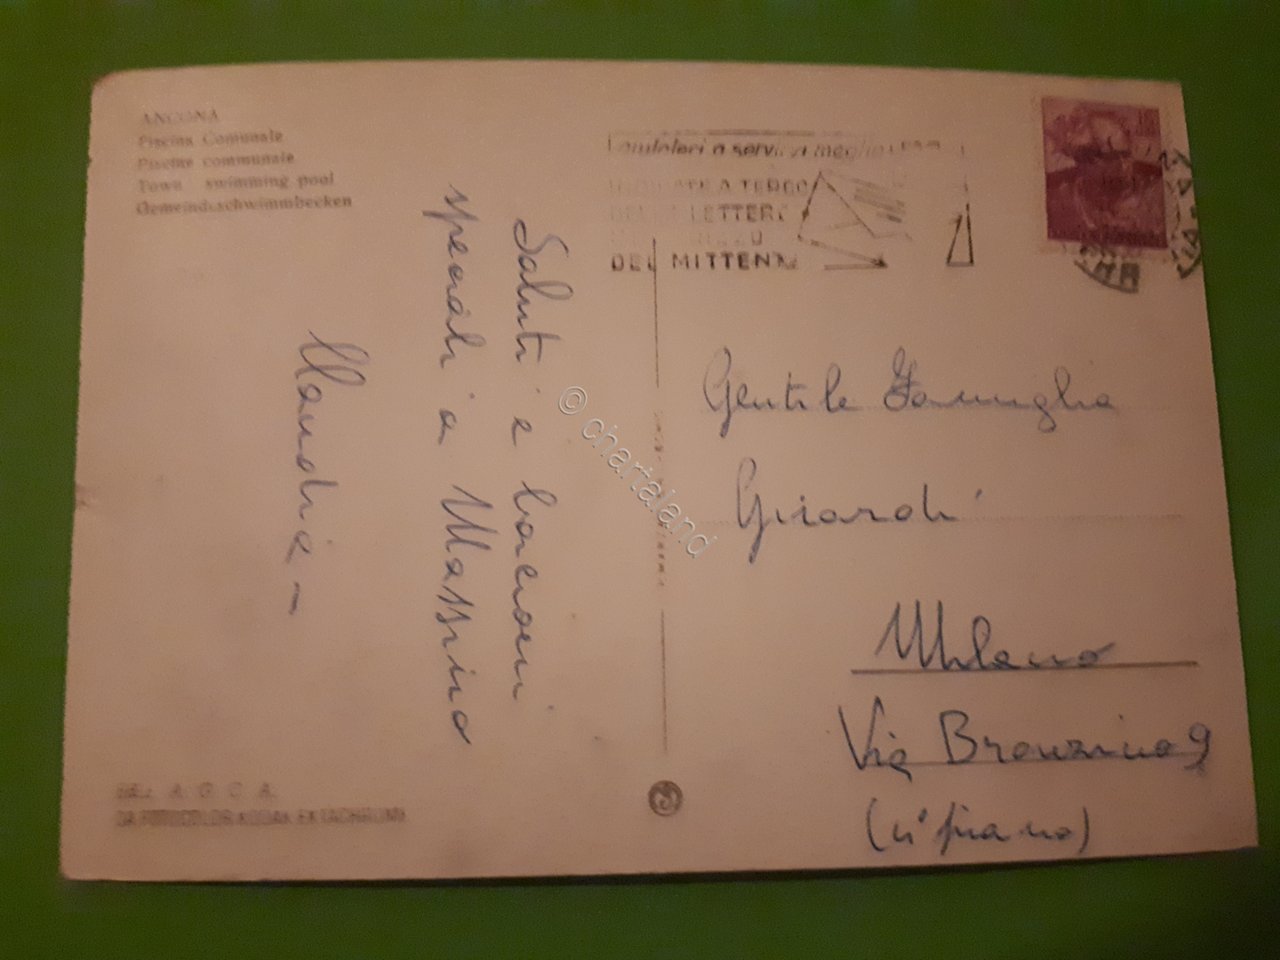 ANCONA
Piscina Comunale
Piscine communale
Town swimming pool
Gemeindeschwimmbecken
a servirvi meglio
A TERGO
LETTERE
DEL MITTENTE
Saluti e bacioni
speciali a Massimo
Claudia -
Gentile Famiglia
Girardi
Milano
Via Bronzino 9
piano)
© chartaland
A. G. C. A.
DA FOTOCOLOR KODAK EKTACHROME